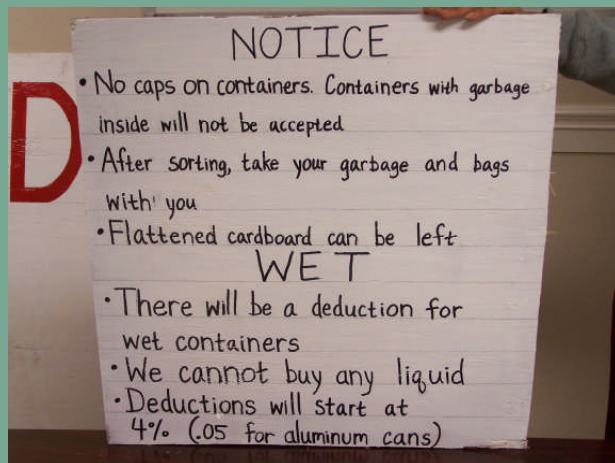 NOTICE
• No caps on containers. Containers with garbage
inside will not be accepted
• After sorting, take your garbage and bags
with you
• Flattened cardboard can be left
WET
• There will be a deduction for
wet containers
• We cannot buy any liquid
• Deductions will start at
4% (.05 for aluminum cans)
D